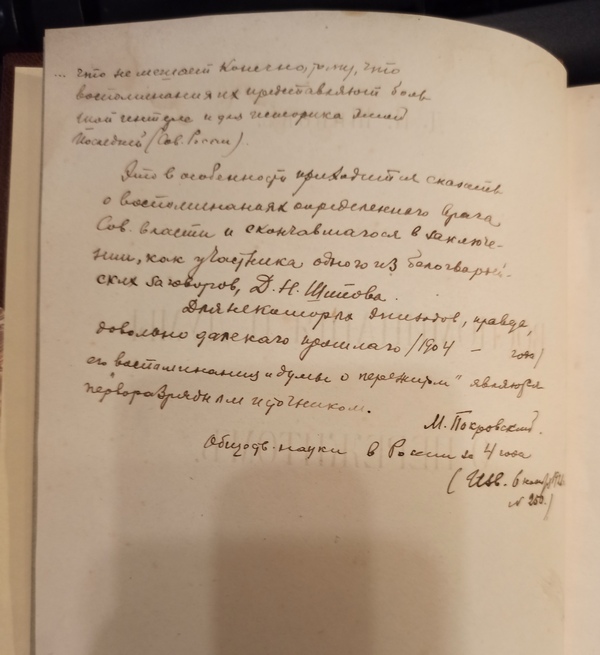 ... что не мешает конечно, тому, что
воспоминания их представляют боль
шой интерес и для историка
последней (Сов. России).
Это в особенности приходится сказать
о воспоминаниях определенного врага
Сов. власти и скончавшагося в заключе-
нии, как участника одного из белогвардей-
ских заговоров, Д. Н. Шипова.
Для некоторых эпизодов, правда,
довольно далекаго прошлаго /1904 – года/
его воспоминания и думы о пережитом" являются
"перворазрядным источником.
М. Покровский.
Обществ. науки в России за 4 года
(Изв. 6
№ 250.)